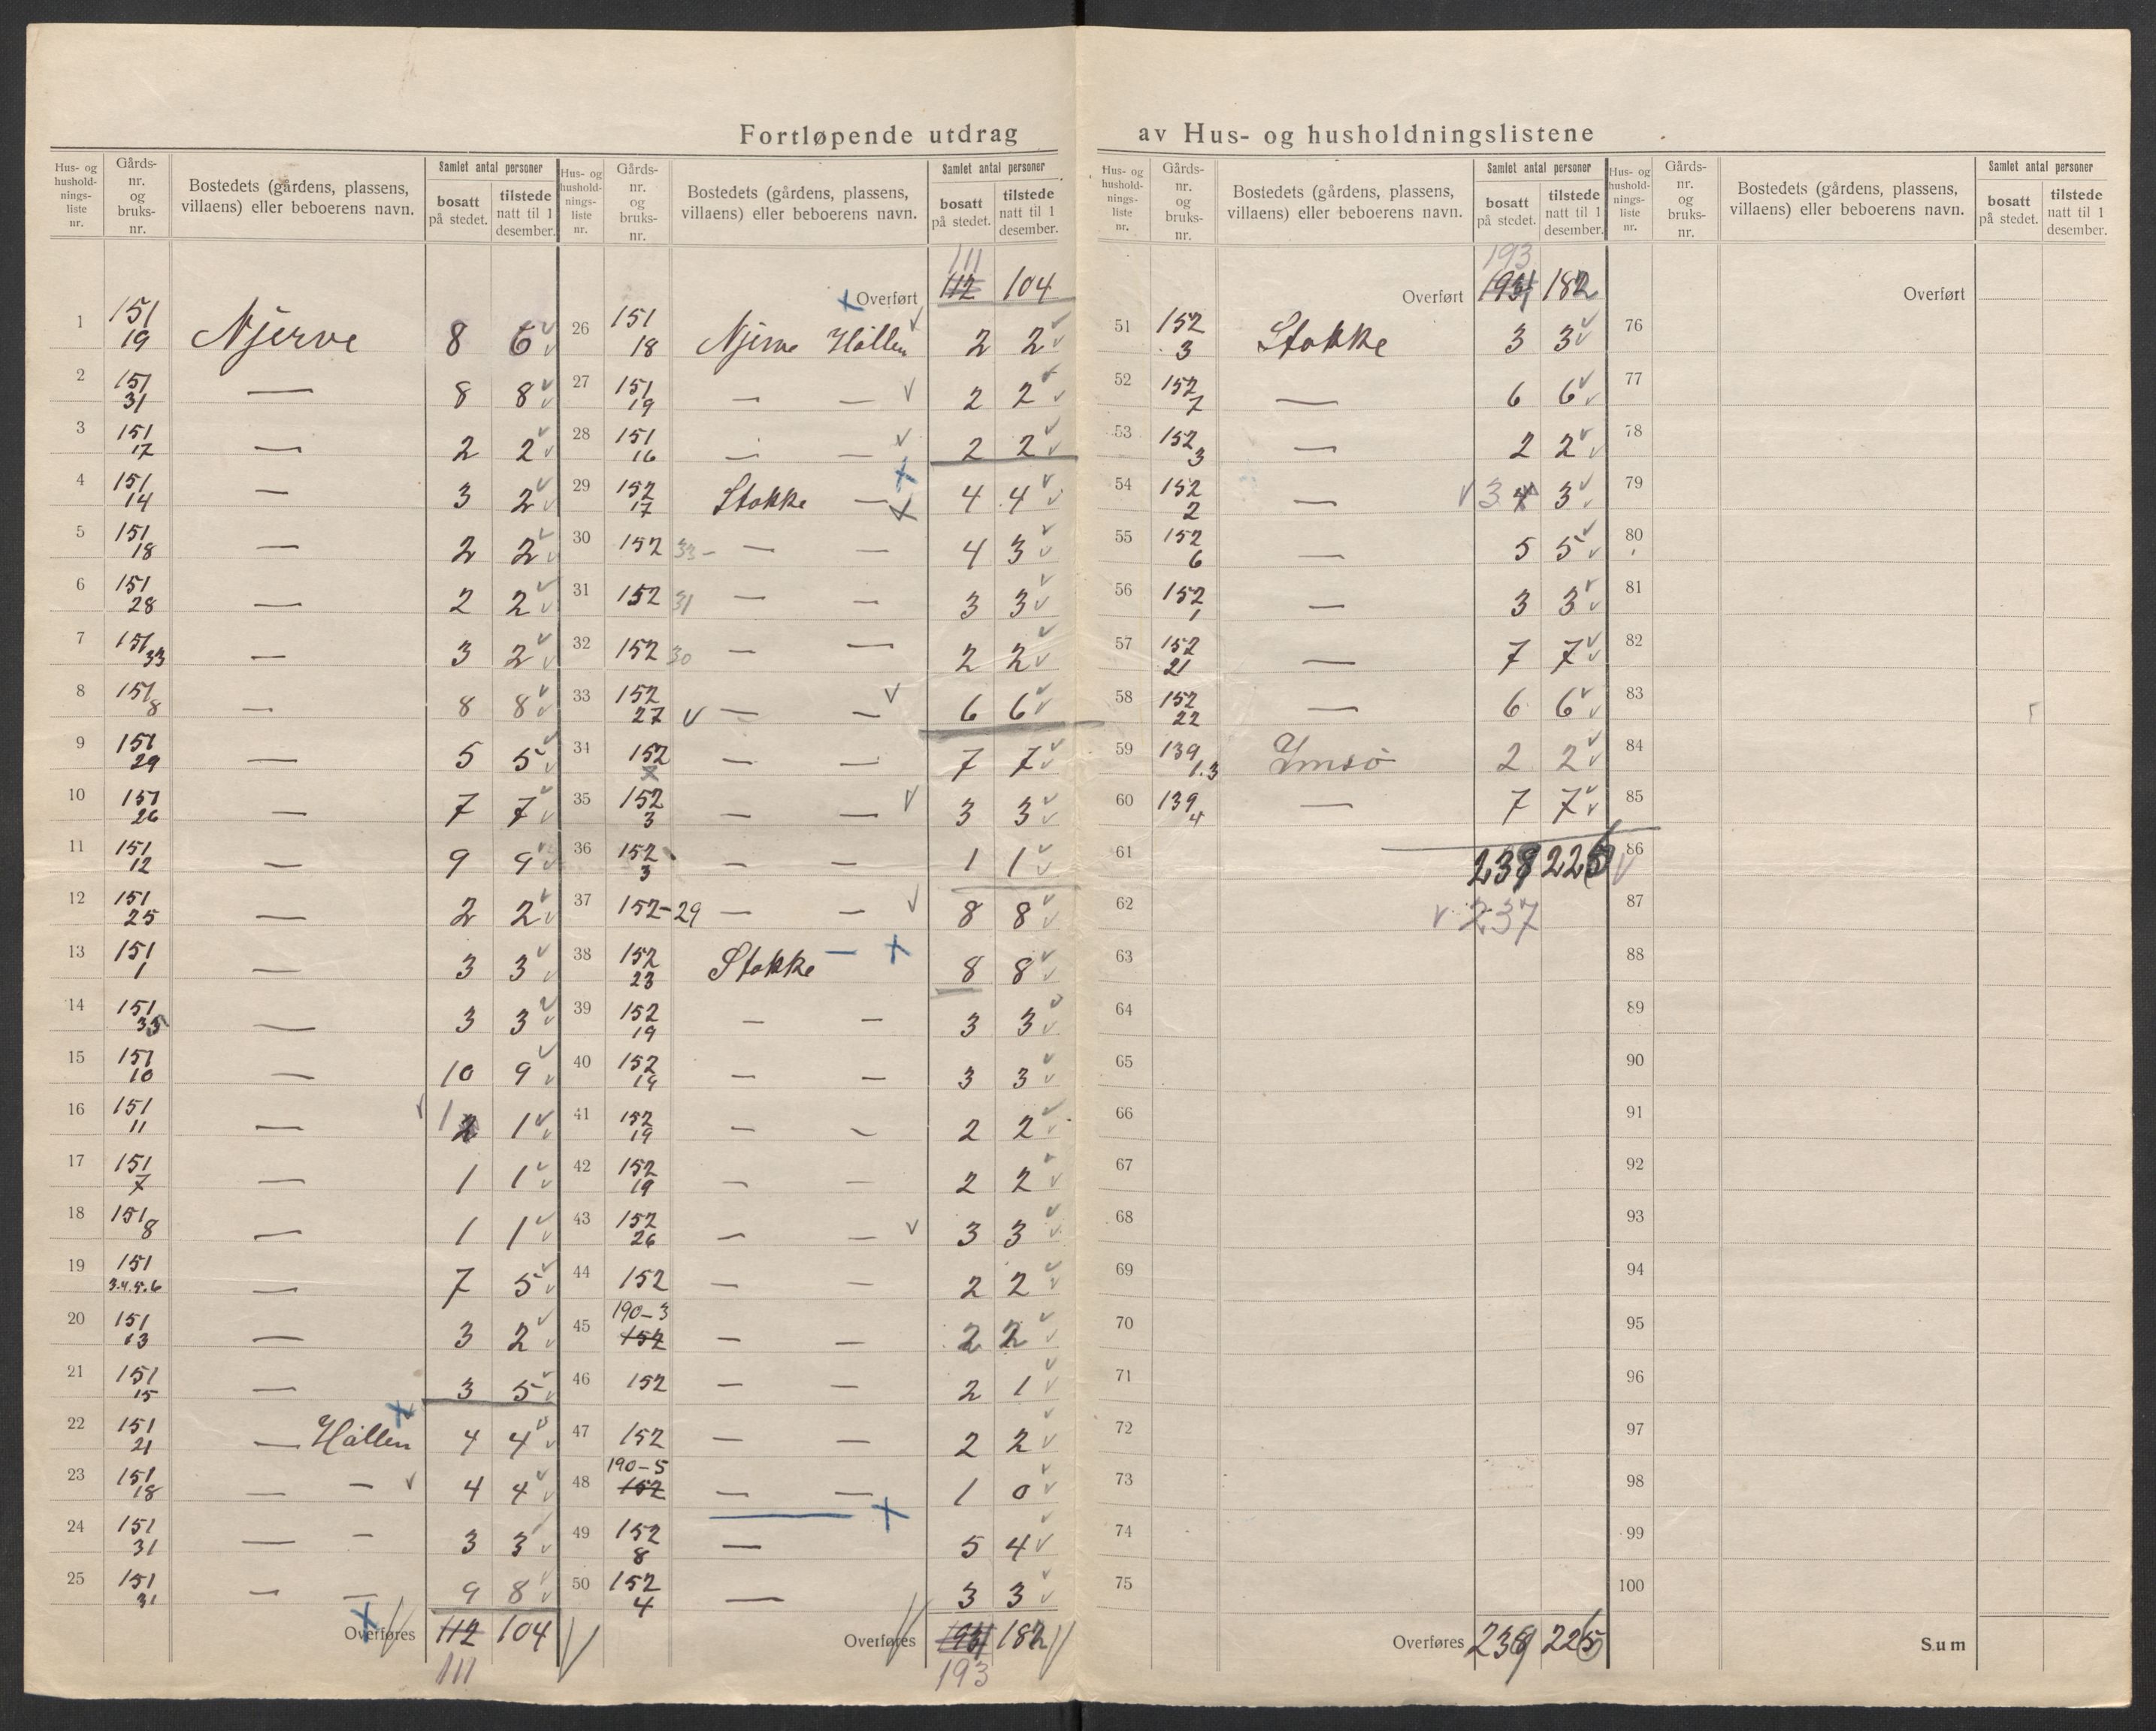 Fortløpende utdrag av Hus- og husholdningslistene
Hus- og husholdnings-liste nr. Gårds-nr. og bruks-nr. Bostedets (gårdens, plassens, villaens) eller beboerens navn. Samlet antal personer bosatt på stedet. tilstede natt til 1 desember.
1 151 19 Njerve 8 6
2 151 31 — 8 8
3 151 17 — 2 2
4 151 14 — 3 2
5 151 18 — 2 2
6 151 28 — 2 2
7 151 33 — 3 2
8 151 8 — 8 8
9 151 29 — 5 5
10 151 26 — 7 7
11 151 12 — 9 9
12 151 25 — 2 2
13 151 1 — 3 3
14 151 35 — 3 3
15 151 10 — 10 9
16 151 11 — 1 2 1
17 151 7 — 1 1
18 151 8 — 1 1
19 151 3.4.5.6 — 7 5
20 151 13 — 3 2
21 151 15 — 3 5
22 151 21 — Hallen 4 4
23 151 18 — — 4 4
24 151 31 — — 3 3
25 151 31 — — 9 8
Overføres 112 104
111
Hus- og husholdnings-liste nr. Gårds-nr. og bruks-nr. Bostedets (gårdens, plassens, villaens) eller beboerens navn. Samlet antal personer bosatt på stedet. tilstede natt til 1 desember.
111
Overført 112 104
26 151 18 Njerve Hallen 2 2
27 151 19 — — 2 2
28 151 16 — — 2 2
29 152 17 Stokke — 4 4
30 152 33 — — — 4 3
31 152 31 — — 3 3
32 152 30 — — 2 2
33 152 27 — — 6 6
34 152 7 — — 7 7
35 152 3 — — 3 3
36 152 3 — — 1 1
37 152-29 — — 8 8
38 152 23 Stokke — 8 8
39 152 19 — — 3 3
40 152 19 — — 3 3
41 152 19 — — 2 2
42 152 19 — — 2 2
43 152 26 — — 3 3
44 152 — — 2 2
45 190-3 152 — — 2 2
46 152 — — 2 1
47 152 — — 2 2
48 190-5 152 — — 1 0
49 152 8 — 5 4
50 152 4 — 3 3
Overføres 194 182
193
Hus- og husholdnings-liste nr. Gårds-nr. og bruks-nr. Bostedets (gårdens, plassens, villaens) eller beboerens navn. Samlet antal personer bosatt på stedet. tilstede natt til 1 desember.
193
Overført 194 182
51 152 3 Stokke 3 3
52 152 7 — 6 6
53 152 3 — 2 2
54 152 2 — 3 4 3
55 152 6 — 5 5
56 152 1 — 3 3
57 152 21 — 7 7
58 152 22 — 6 6
59 139 1.3 Ymsö 2 2
60 139 4 — 7 7
61 239 226
62 237
63
64
65
66
67
68
69
70
71
72
73
74
75
Overføres 239 226
Hus- og husholdnings-liste nr. Gårds-nr. og bruks-nr. Bostedets (gårdens, plassens, villaens) eller beboerens navn. Samlet antal personer bosatt på stedet. tilstede natt til 1 desember.
Overført
76
77
78
79
80
81
82
83
84
85
86
87
88
89
90
91
92
93
94
95
96
97
98
99
100
Sum